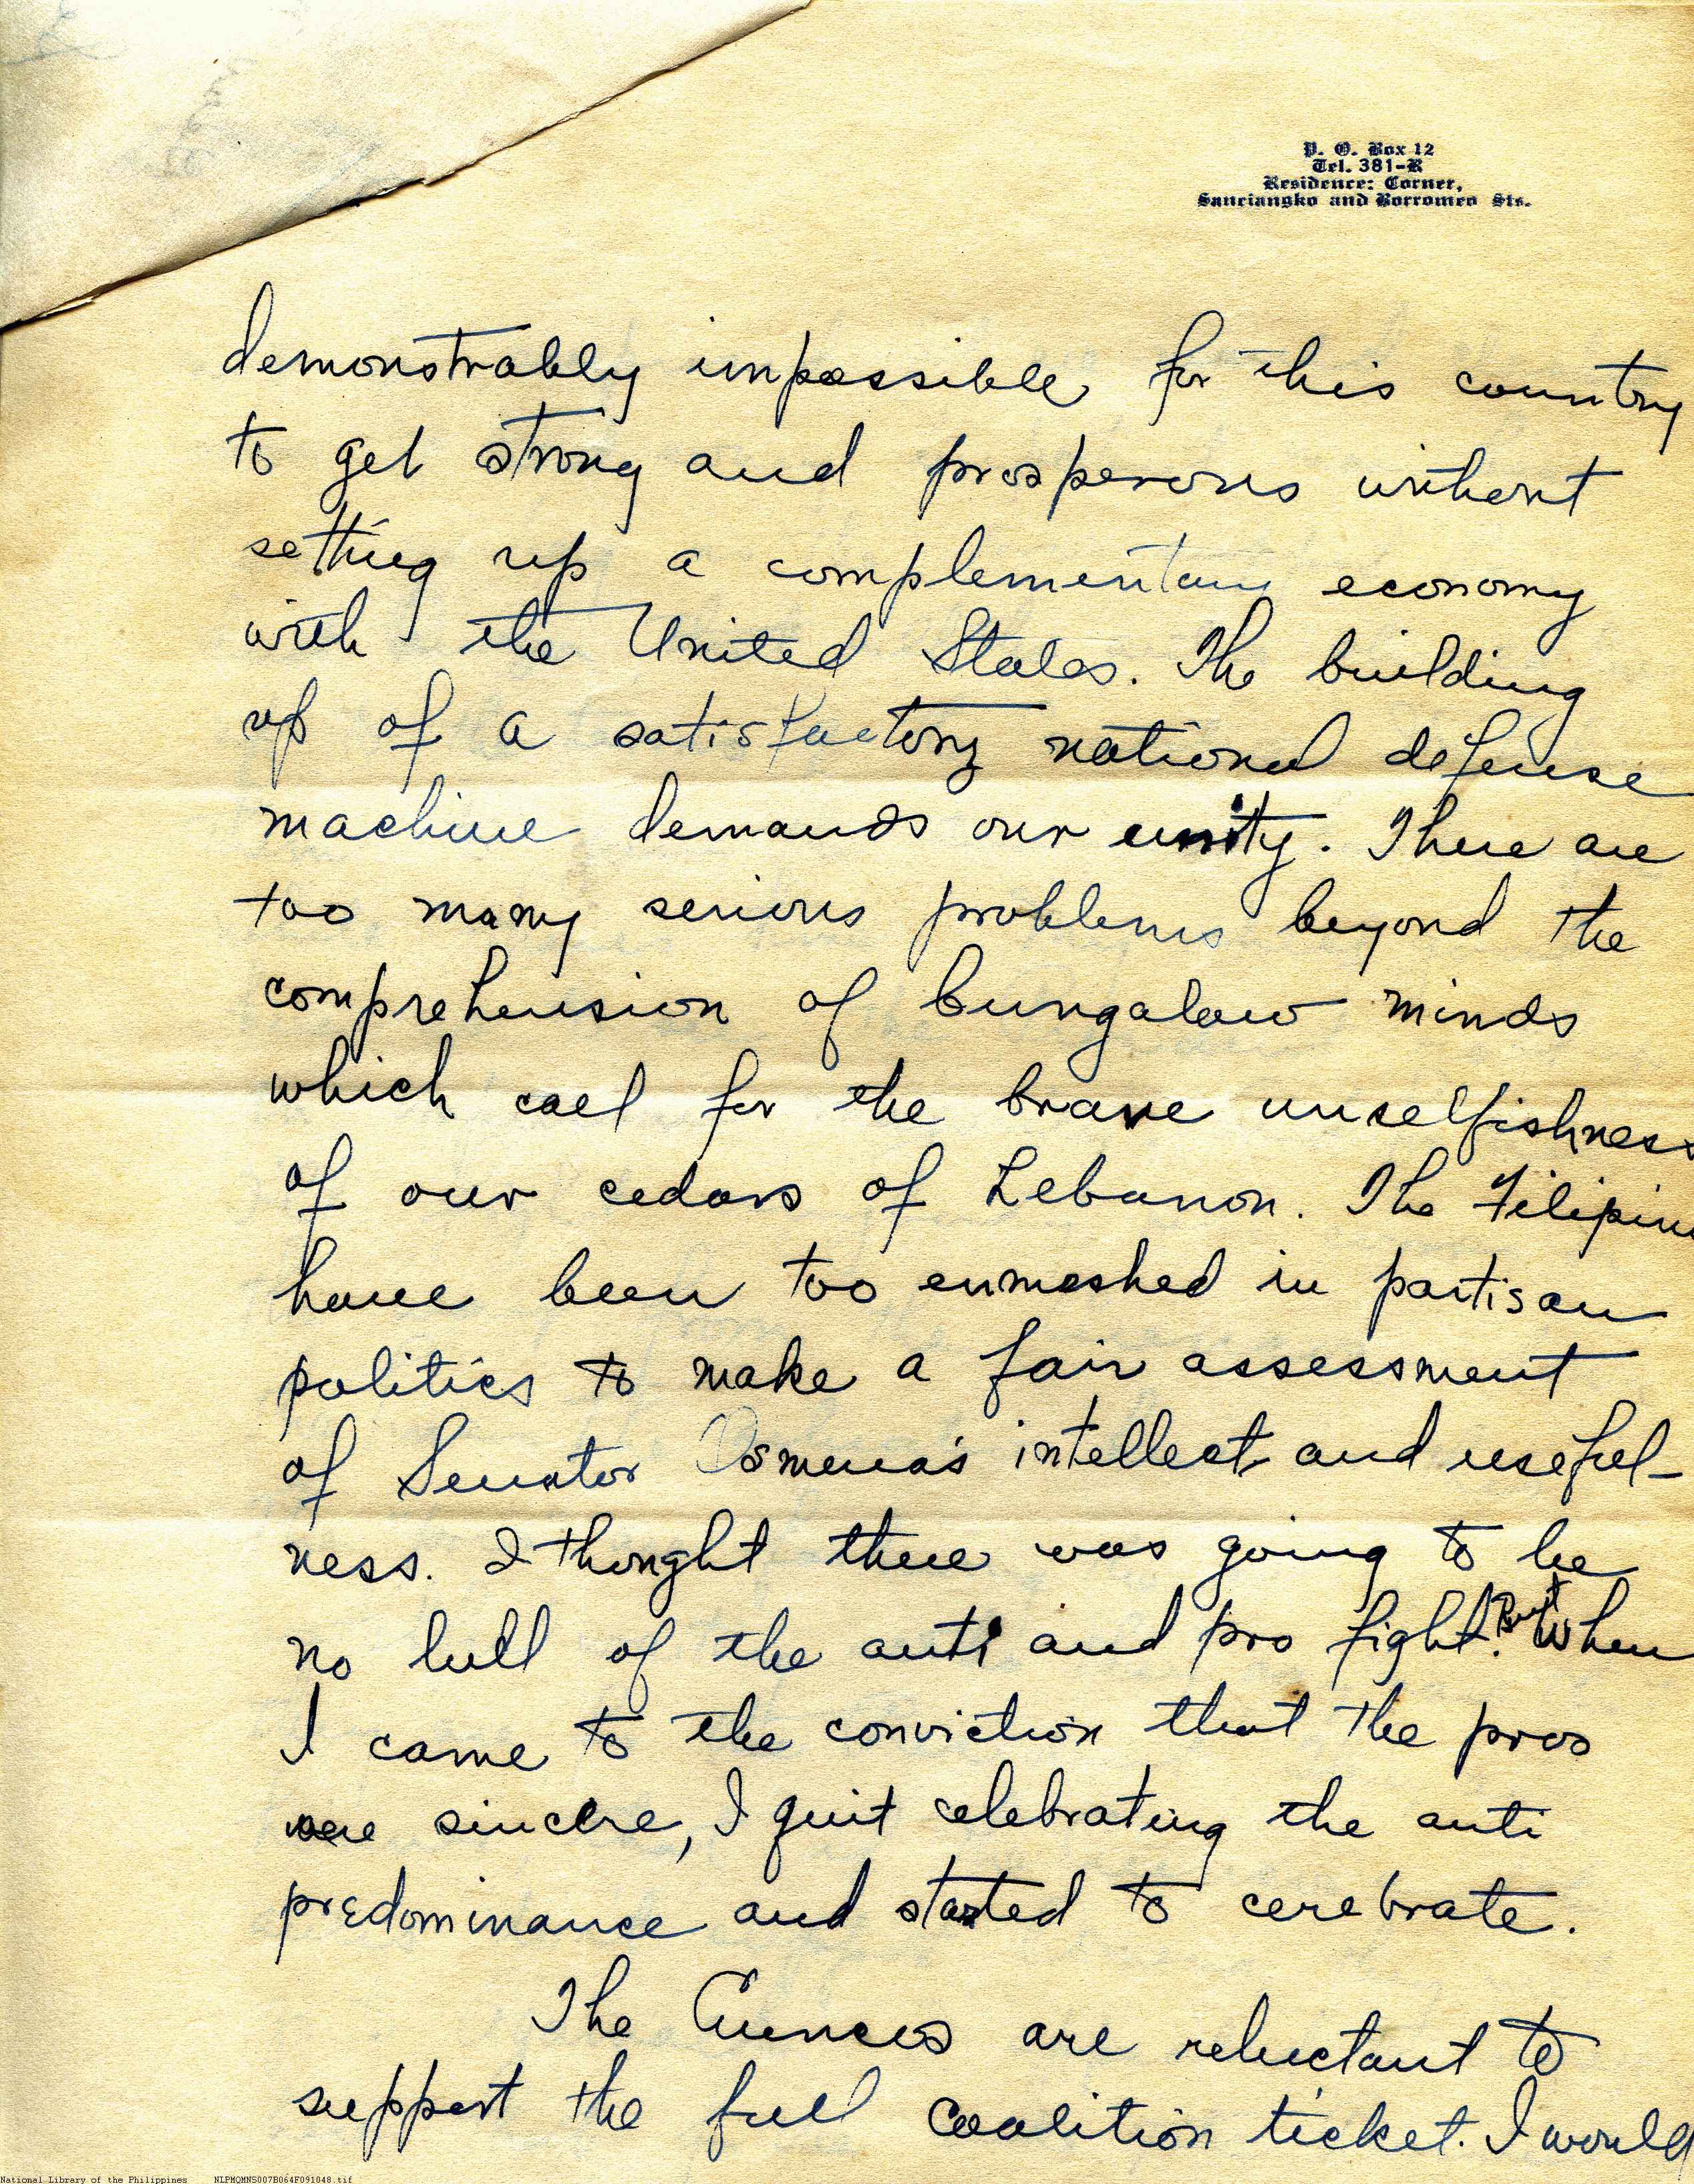 P. O. Box 12
Tel. 381-R
Residence: Corner,
Sanciangko and Borromeo Sts.
demonstrably impossible for this country
to get strong and prosperous without
setting up a complementary economy
with the United States. The building
up of a satisfactory national defense
machine demands our unity. There are
too many serious problems beyond the
comprehension of bungalow minds
which call for the brave unselfishness
of our cedars of Lebanon. The Filipino
have been too enmeshed in partisan
politics to make a fair assessment
of Senator Osmena's intellect and useful-
ness. I thought there was going to be
no lull of the anti and pro fight. But When
I came to the conviction that the pros
were sincere, I quit celebrating the anti
predominance and started to cerebrate.
The Cuencos are reluctant to
support the full coalition ticket. I would
National Library of the Philippines NLPMQMNS007B064F091048.tif